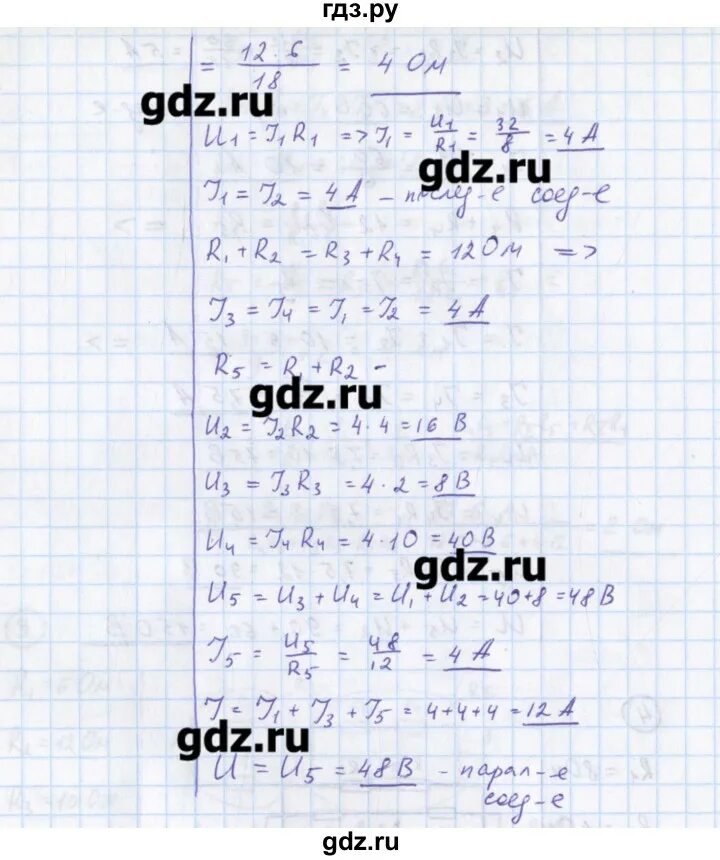 гдз.ру
= 12·6/18 = 4 Ом
gdz.ru
U1 = J1R1 => J1 = U1/R1 = 32/8 = 4 A
gdz.ru
J1 = J2 = 4 A – послед-е соед-е
R1 + R2 = R3 + R4 = 12 Ом =>
J3 = J4 = J1 = J2 = 4 A
R5 = R1 + R2 –
gdz.ru
U2 = J2R2 = 4·4 = 16 В
U3 = J3R3 = 4·2 = 8 В
U4 = J4R4 = 4·10 = 40 В
gdz.ru
U5 = U3 + U4 = U1 + U2 = 40+8 = 48 В
J5 = U5/R5 = 48/12 = 4 A
J = J1 + J3 + J5 = 4+4+4 = 12 A
gdz.ru
U = U5 = 48 В – парал-е
соед-е
gdz.ru